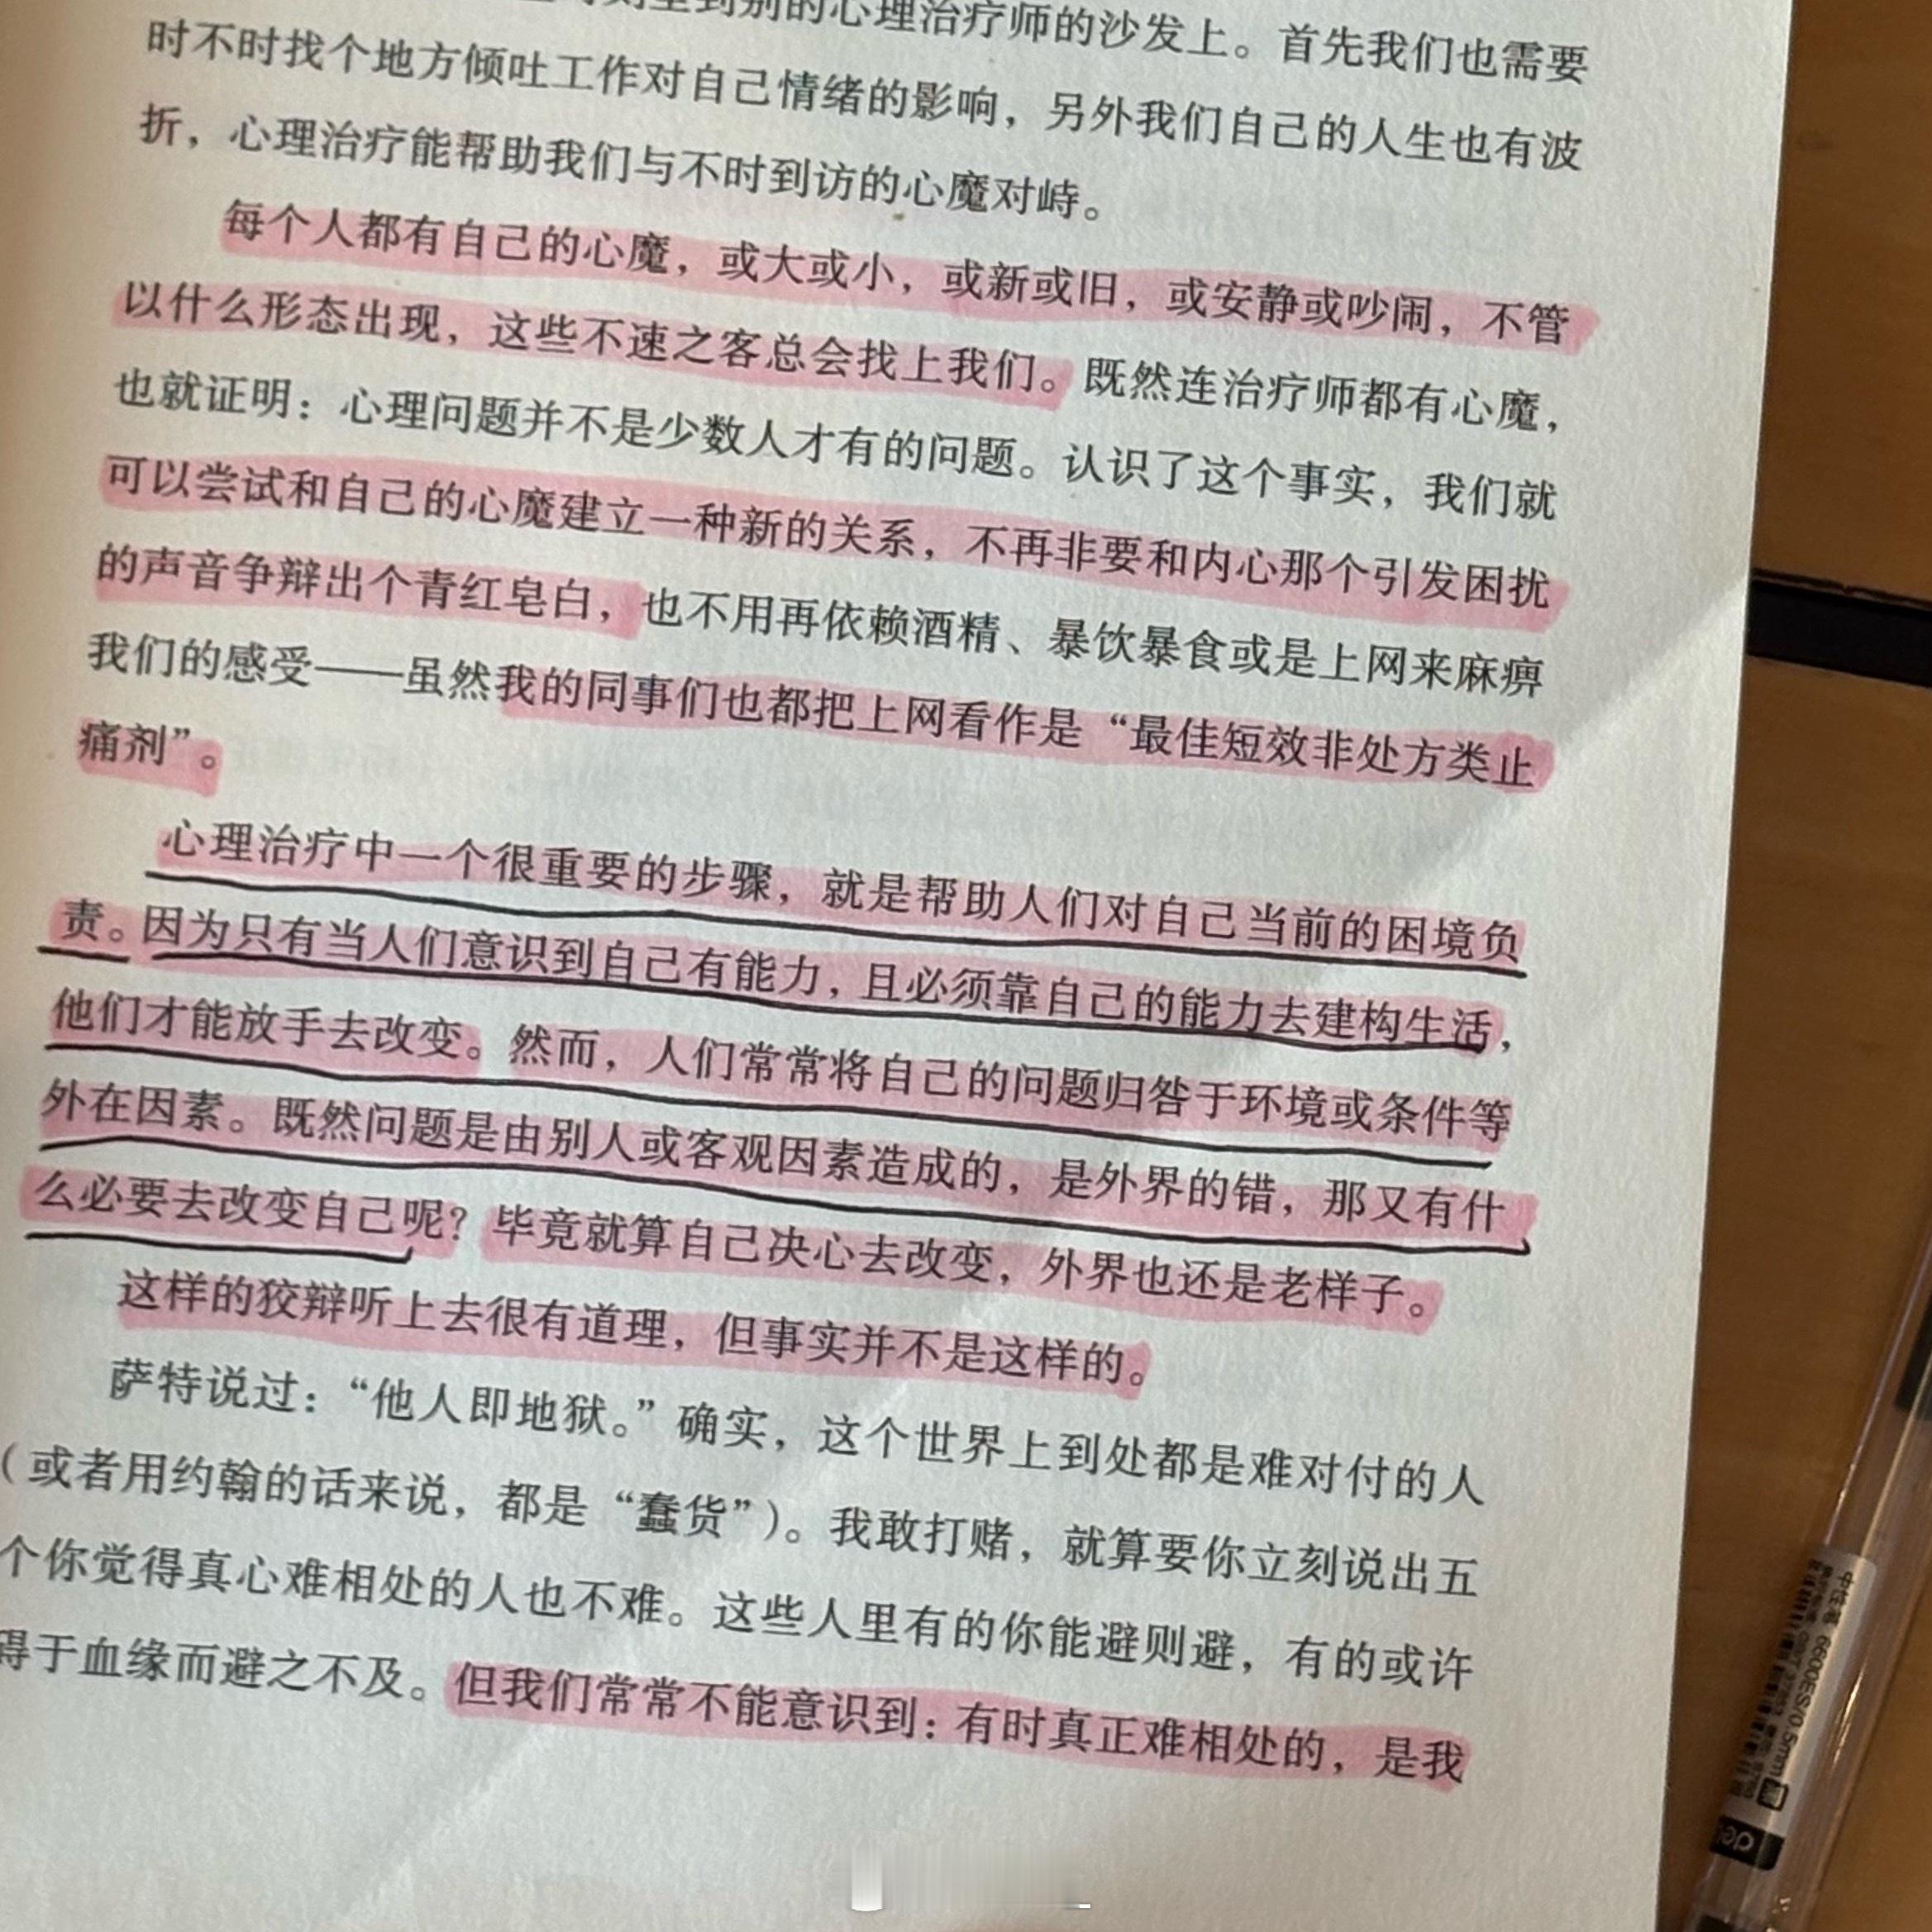 到别的心理治疗师的沙发上。首先我们也需要
时不时找个地方倾吐工作对自己情绪的影响，另外我们自己的人生也有波
折，心理治疗能帮助我们与不时到访的心魔对峙。
每个人都有自己的心魔，或大或小，或新或旧，或安静或吵闹，不管
以什么形态出现，这些不速之客总会找上我们。既然连治疗师都有心魔，
也就证明：心理问题并不是少数人才有的问题。认识了这个事实，我们就
可以尝试和自己的心魔建立一种新的关系，不再非要和内心那个引发困扰
的声音争辩出个青红皂白，也不用再依赖酒精、暴饮暴食或是上网来麻痹
我们的感受——虽然我的同事们也都把上网看作是“最佳短效非处方类止
痛剂”。
心理治疗中一个很重要的步骤，就是帮助人们对自己当前的困境负
责。因为只有当人们意识到自己有能力，且必须靠自己的能力去建构生活，
他们才能放手去改变。然而，人们常常将自己的问题归咎于环境或条件等
外在因素。既然问题是由别人或客观因素造成的，是外界的错，那又有什
么必要去改变自己呢？毕竟就算自己决心去改变，外界也还是老样子。
这样的狡辩听上去很有道理，但事实并不是这样的。
萨特说过：“他人即地狱。”确实，这个世界上到处都是难对付的人
（或者用约翰的话来说，都是“蠢货”）。我敢打赌，就算要你立刻说出五
个你觉得真心难相处的人也不难。这些人里有的你能避则避，有的或许
碍于血缘而避之不及。但我们常常不能意识到：有时真正难相处的，是我
中性笔 6600ES/0.5mm